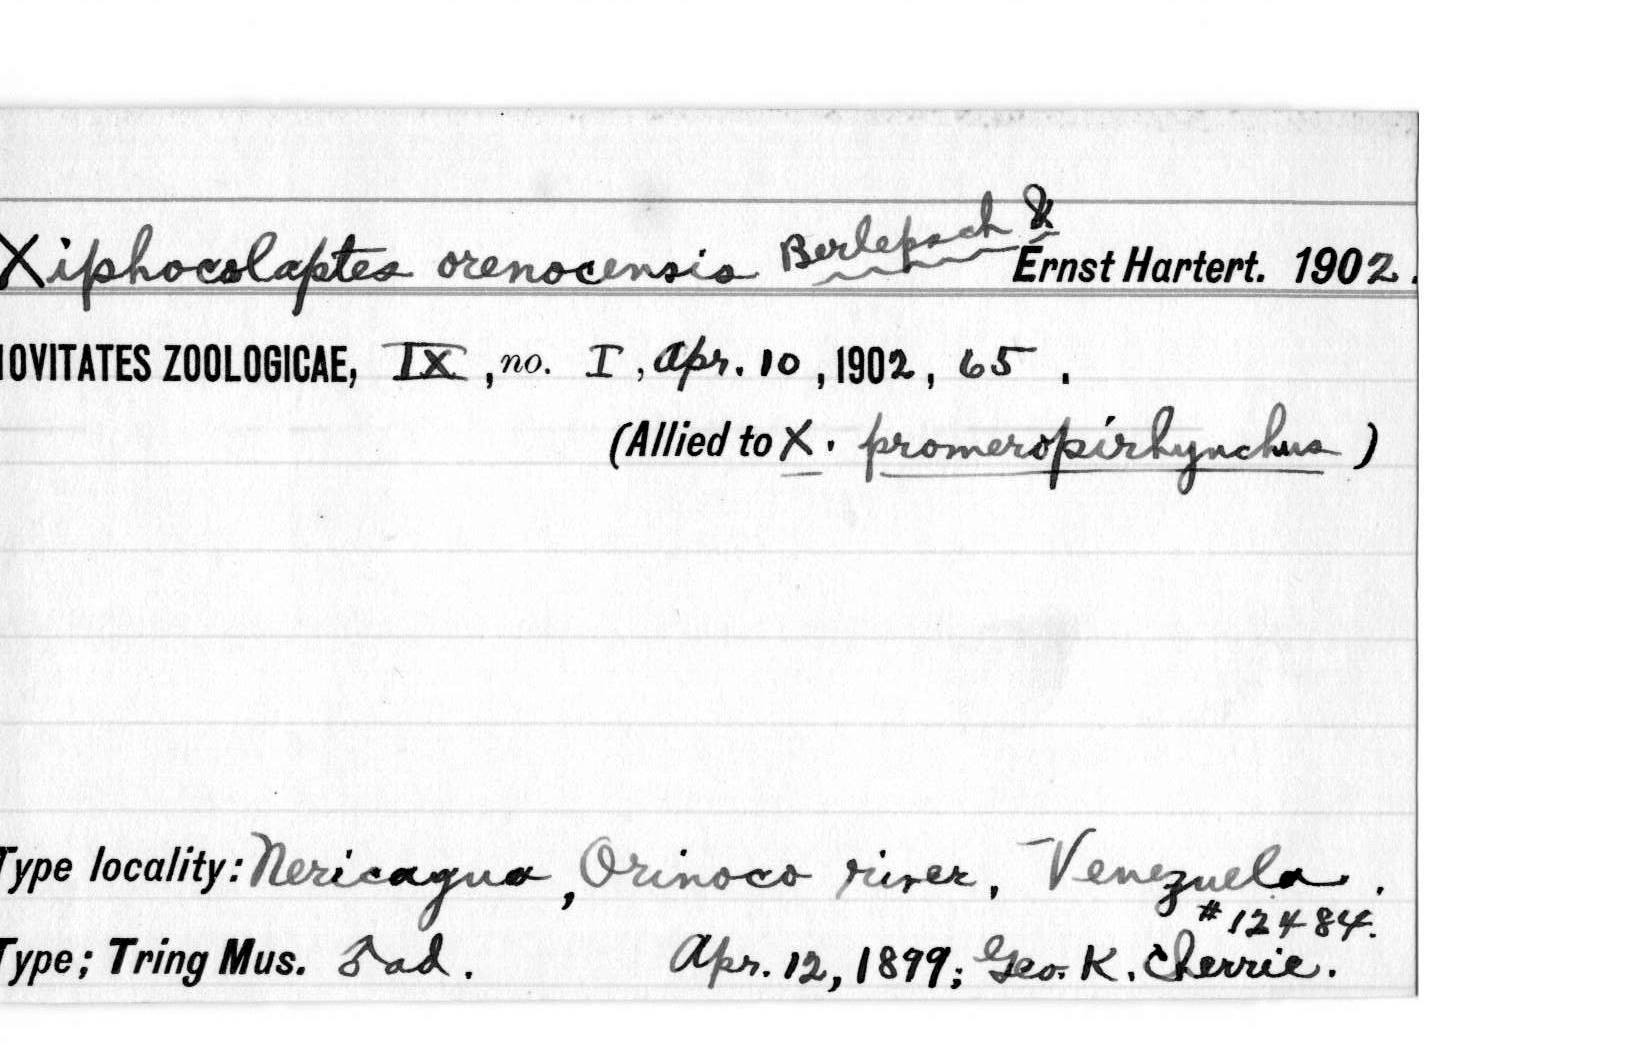 Xiphocolaptes orenocensis Berlepsch &
Ernst Hartert. 1902.
OVITATES ZOOLOGICAE, IX, no. I, Apr. 10, 1902, 65.
(Allied to X. promeropirhynchus)
Type locality: Nericagua, Orinoco river, Venezuela.
#12484.
Type; Tring Mus. ad. Apr. 12, 1899; Geo. K. Cherrie.